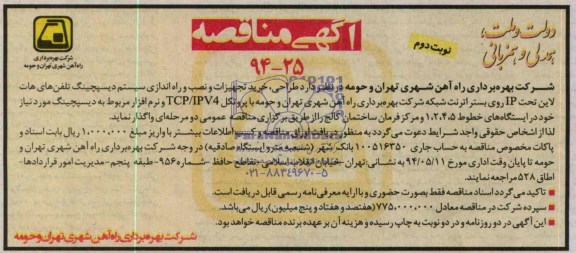 دولت و ملت،
همدلی و همزبانی
نوبت دوم
آگهی مناقصه
۹۴-۲۵
شرکت بهره‌برداری
راه آهن شهری تهران و حومه
شرکت بهره‌برداری راه آهن شهری تهران و حومه در نظر دارد طراحی، خرید تجهیزات و نصب و راه اندازی سیستم دیسپچینگ تلفن‌های هات
لاین تحت IP روی بستر اترنت شبکه شرکت بهره‌برداری راه آهن شهری تهران و حومه با پروتکل TCP/IPV4 و نرم افزار مربوط به دیسپچینگ مورد نیاز
خود در ایستگاه‌های خطوط ۱،۲،۴،۵ و مرکز فرمان ساختمان گالج را از طریق برگزاری مناقصه عمومی دو مرحله‌ای واگذار نماید.
لذا از اشخاص حقوقی واجد شرایط دعوت می گردد به منظور دریافت اوراق مناقصه و کسب اطلاعات بیشتر با واریز مبلغ ۱,۰۰۰,۰۰۰ ریال بابت اسناد و
پاکات مخصوص مناقصه به حساب جاری ۱۰۰۵۱۶۳۵۰ بانک شهر (شعبه مترو ایستگاه صادقیه) در وجه شرکت بهره‌برداری راه آهن شهری تهران و
حومه تا پایان وقت اداری مورخ ۹۴/۰۵/۱۱ به نشانی تهران -خیابان انقلاب اسلامی -تقاطع حافظ -شماره ۹۵۶-طبقه پنجم-مدیریت امور قراردادها-
اطاق ۵۲۸ مراجعه نمایند.
تاکید می گردد اسناد مناقصه فقط بصورت حضوری و با ارایه معرفی نامه رسمی قابل دریافت است.
سپرده شرکت در مناقصه معادل ۷۷۵,۰۰۰,۰۰۰ (هفتصد و هفتاد و پنج میلیون) ریال می‌باشد.
این آگهی در دو روزنامه و در دو نوبت به چاپ رسیده و هزینه آن بر عهده برنده مناقصه خواهد بود.
شرکت بهره‌برداری راه آهن شهری تهران و حومه
۰۲۱-۸۸۳۴۹۶۷۰-۵